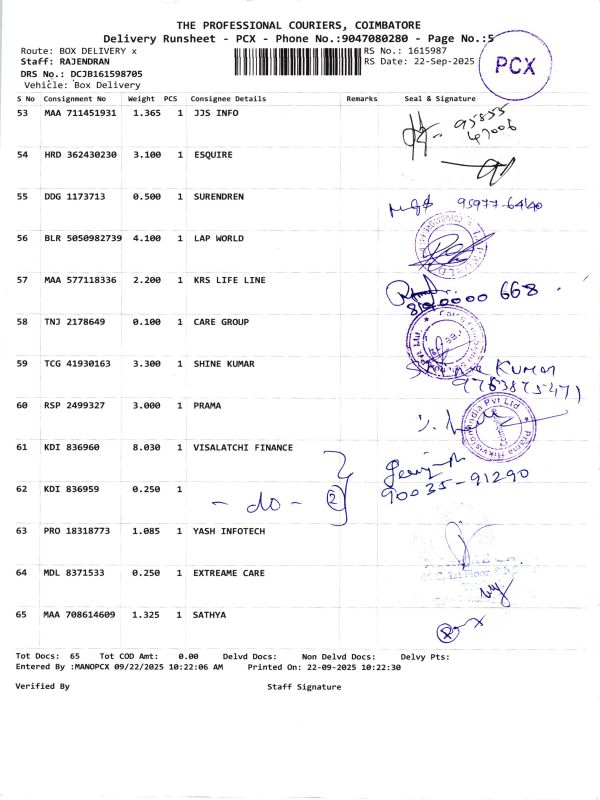 THE PROFESSIONAL COURIERS, COIMBATORE
Delivery Runsheet - PCX - Phone No.:9047080280 - Page No.:5
Route: BOX DELIVERY x RS No.: 1615987
Staff: RAJENDRAN RS Date: 22-Sep-2025
PCX
DRS No.: DCJB161598705
Vehicle: Box Delivery
S No Consignment No Weight PCS Consignee Details Remarks Seal & Signature
53 MAA 711451931 1.365 1 JJS INFO 95855
47006
54 HRD 362430230 3.100 1 ESQUIRE
55 DDG 1173713 0.500 1 SURENDREN 95977-64140
56 BLR 5050982739 4.100 1 LAP WORLD
57 MAA 577118336 2.200 1 KRS LIFE LINE
668
58 TNJ 2178649 0.100 1 CARE GROUP
59 TCG 41930163 3.300 1 SHINE KUMAR KUMAR
60 RSP 2499327 3.000 1 PRAMA Prama Hikvision India Pvt Ltd
61 KDI 836960 8.030 1 VISALATCHI FINANCE
62 KDI 836959 0.250 1 - do - 2 90035-91290
63 PRO 18318773 1.085 1 YASH INFOTECH
64 MDL 8371533 0.250 1 EXTREAME CARE
65 MAA 708614609 1.325 1 SATHYA
Tot Docs: 65 Tot COD Amt: 0.00 Delvd Docs: Non Delvd Docs: Delvy Pts:
Entered By :MANOPCX 09/22/2025 10:22:06 AM Printed On: 22-09-2025 10:22:30
Verified By Staff Signature